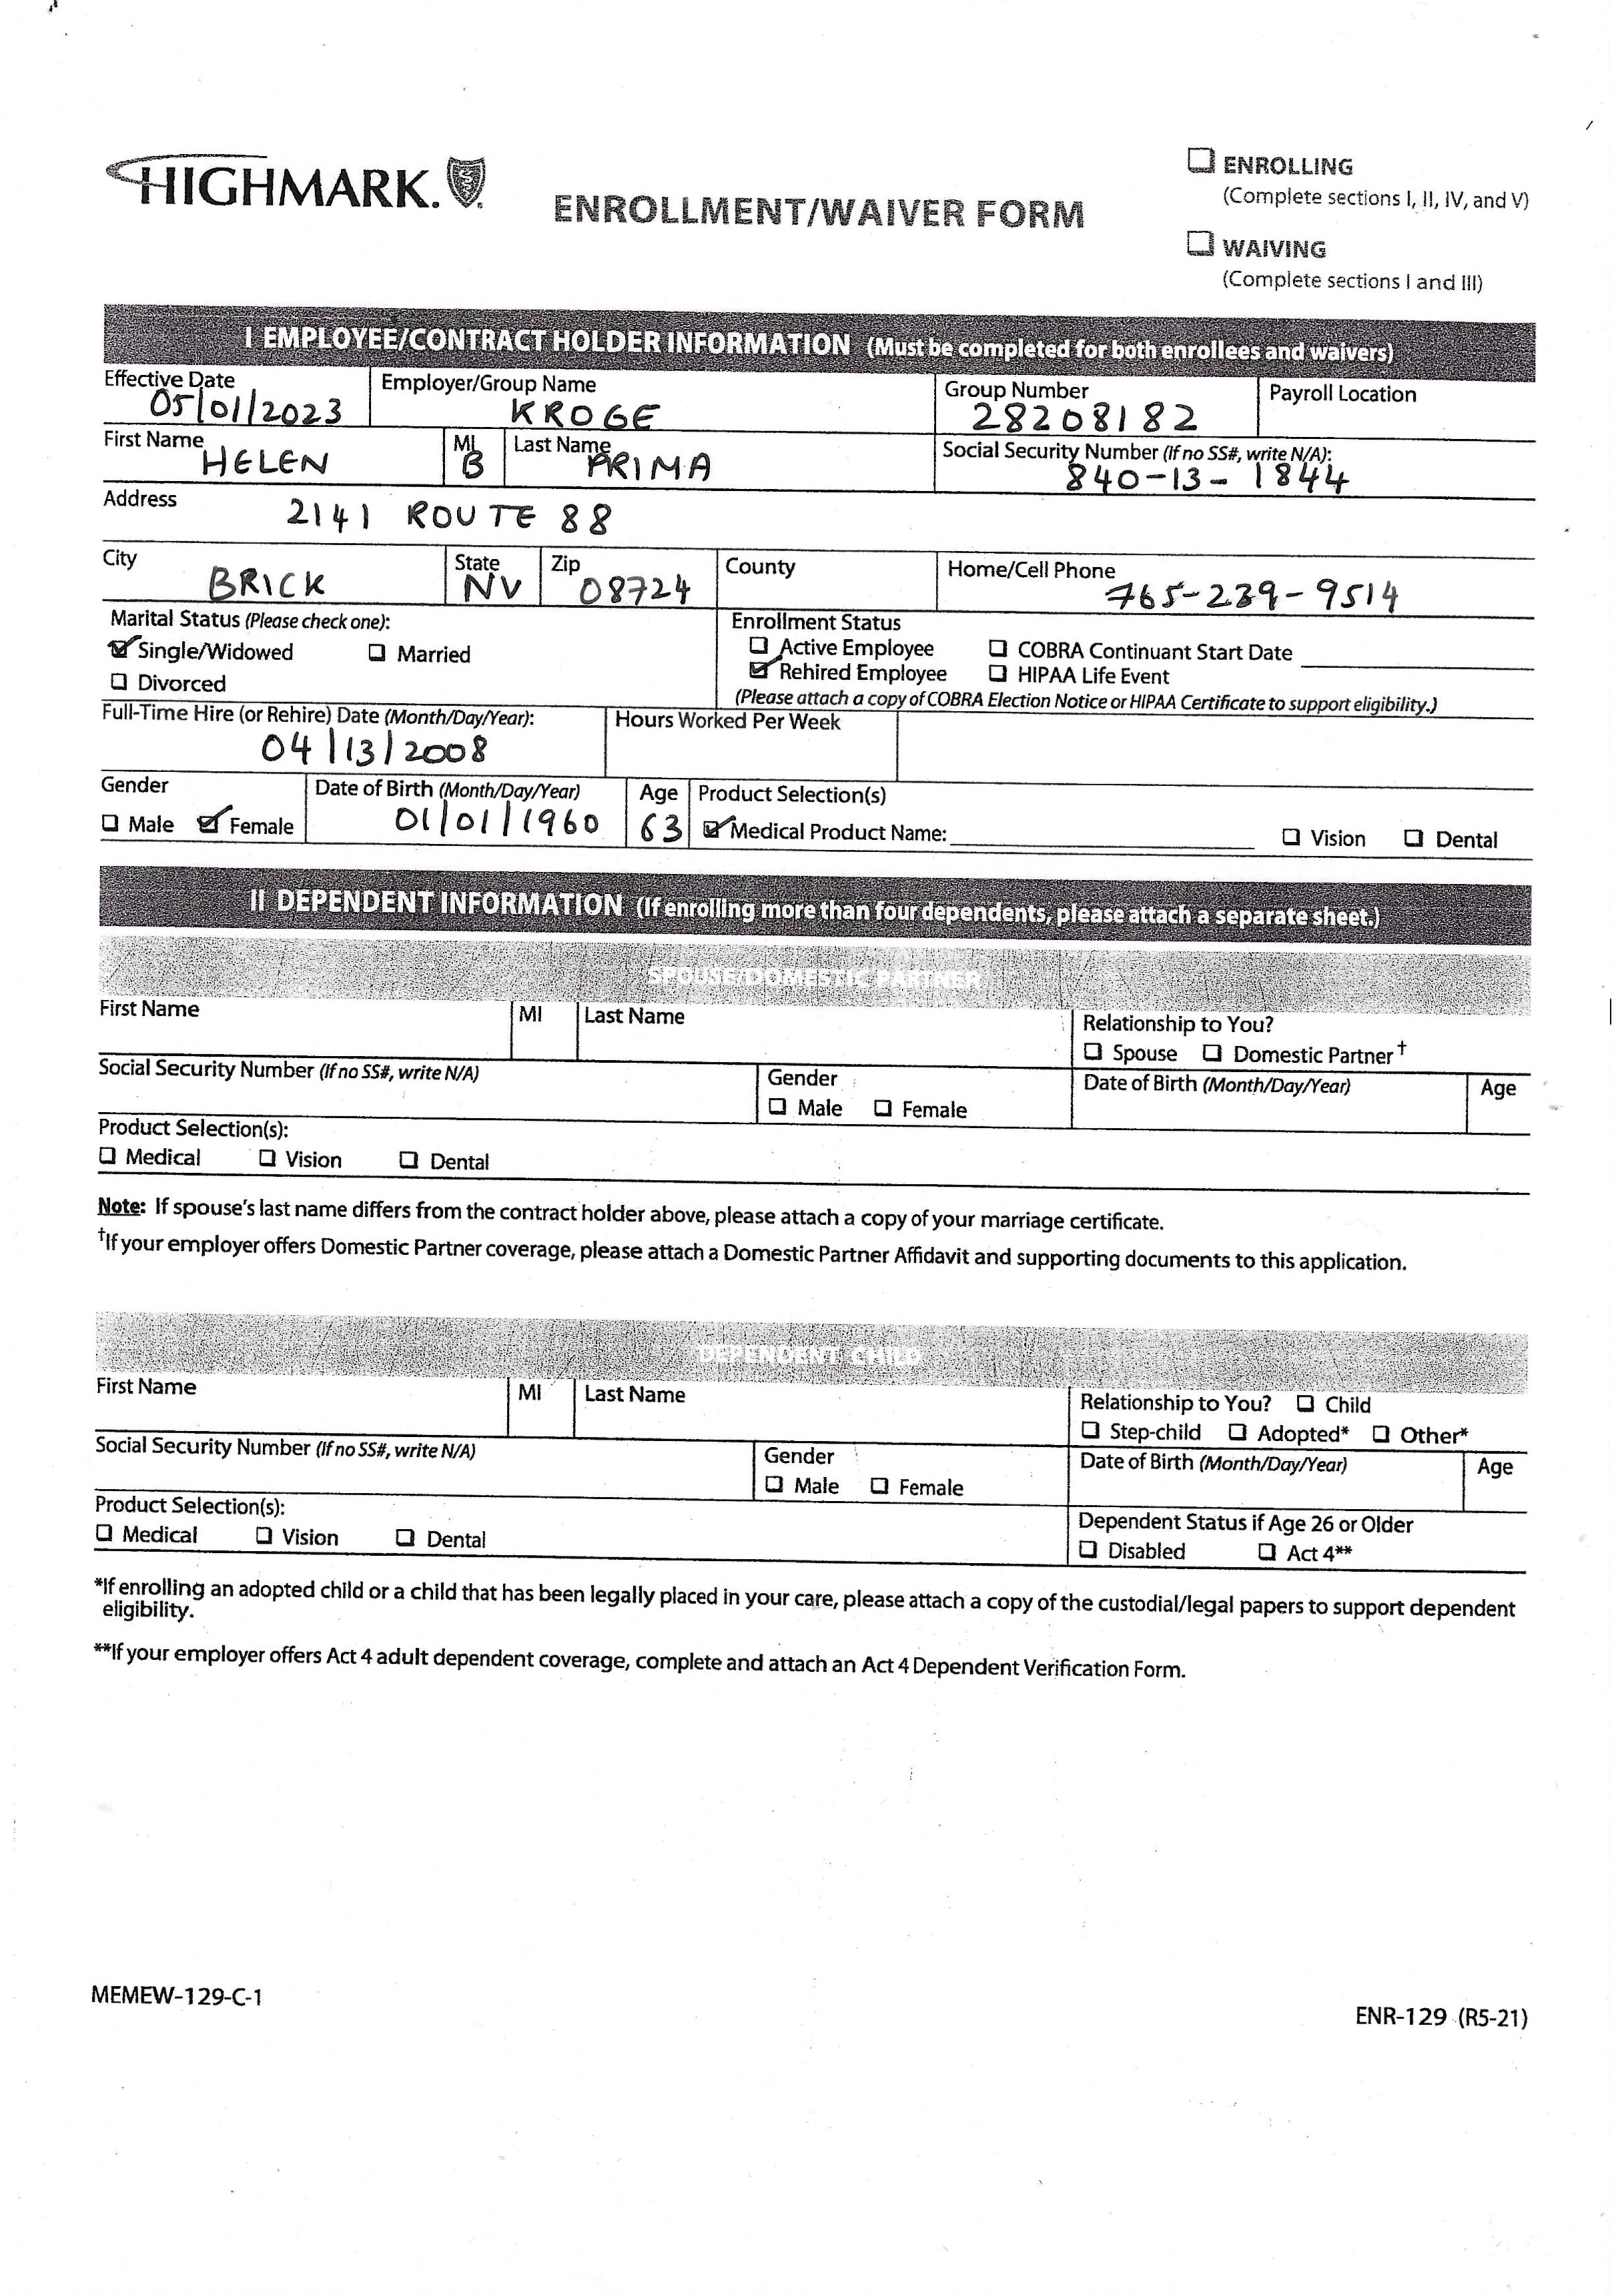 HIGHMARK.
ENROLLMENT/WAIVER FORM
❏ ENROLLING
(Complete sections I, II, IV, and V)
❏ WAIVING
(Complete sections I and III)
I EMPLOYEE/CONTRACT HOLDER INFORMATION (Must be completed for both enrollees and waivers)
Effective Date 05/01/2023
Employer/Group Name KROGE
Group Number 28208182
Payroll Location
First Name HELEN
MI B
Last Name PRIMA
Social Security Number (If no SS#, write N/A): 840-13-1844
Address 2141 ROUTE 88
City BRICK
State NV
Zip 08724
County
Home/Cell Phone 765-239-9514
Marital Status (Please check one):
☑ Single/Widowed ❏ Married
❏ Divorced
Enrollment Status
❏ Active Employee ❏ COBRA Continuant Start Date
☑ Rehired Employee ❏ HIPAA Life Event
(Please attach a copy of COBRA Election Notice or HIPAA Certificate to support eligibility.)
Full-Time Hire (or Rehire) Date (Month/Day/Year): 04/13/2008
Hours Worked Per Week
Gender
❏ Male ☑ Female
Date of Birth (Month/Day/Year) 01/01/1960
Age 63
Product Selection(s)
☑ Medical Product Name: ❏ Vision ❏ Dental
II DEPENDENT INFORMATION (If enrolling more than four dependents, please attach a separate sheet.)
SPOUSE/DOMESTIC PARTNER
First Name
MI
Last Name
Relationship to You?
❏ Spouse ❏ Domestic Partner†
Social Security Number (If no SS#, write N/A)
Gender
❏ Male ❏ Female
Date of Birth (Month/Day/Year)
Age
Product Selection(s):
❏ Medical ❏ Vision ❏ Dental
Note: If spouse's last name differs from the contract holder above, please attach a copy of your marriage certificate.
†If your employer offers Domestic Partner coverage, please attach a Domestic Partner Affidavit and supporting documents to this application.
DEPENDENT CHILD
First Name
MI
Last Name
Relationship to You? ❏ Child
❏ Step-child ❏ Adopted* ❏ Other*
Social Security Number (If no SS#, write N/A)
Gender
❏ Male ❏ Female
Date of Birth (Month/Day/Year)
Age
Product Selection(s):
❏ Medical ❏ Vision ❏ Dental
Dependent Status if Age 26 or Older
❏ Disabled ❏ Act 4**
*If enrolling an adopted child or a child that has been legally placed in your care, please attach a copy of the custodial/legal papers to support dependent
eligibility.
**If your employer offers Act 4 adult dependent coverage, complete and attach an Act 4 Dependent Verification Form.
MEMEW-129-C-1
ENR-129 (R5-21)